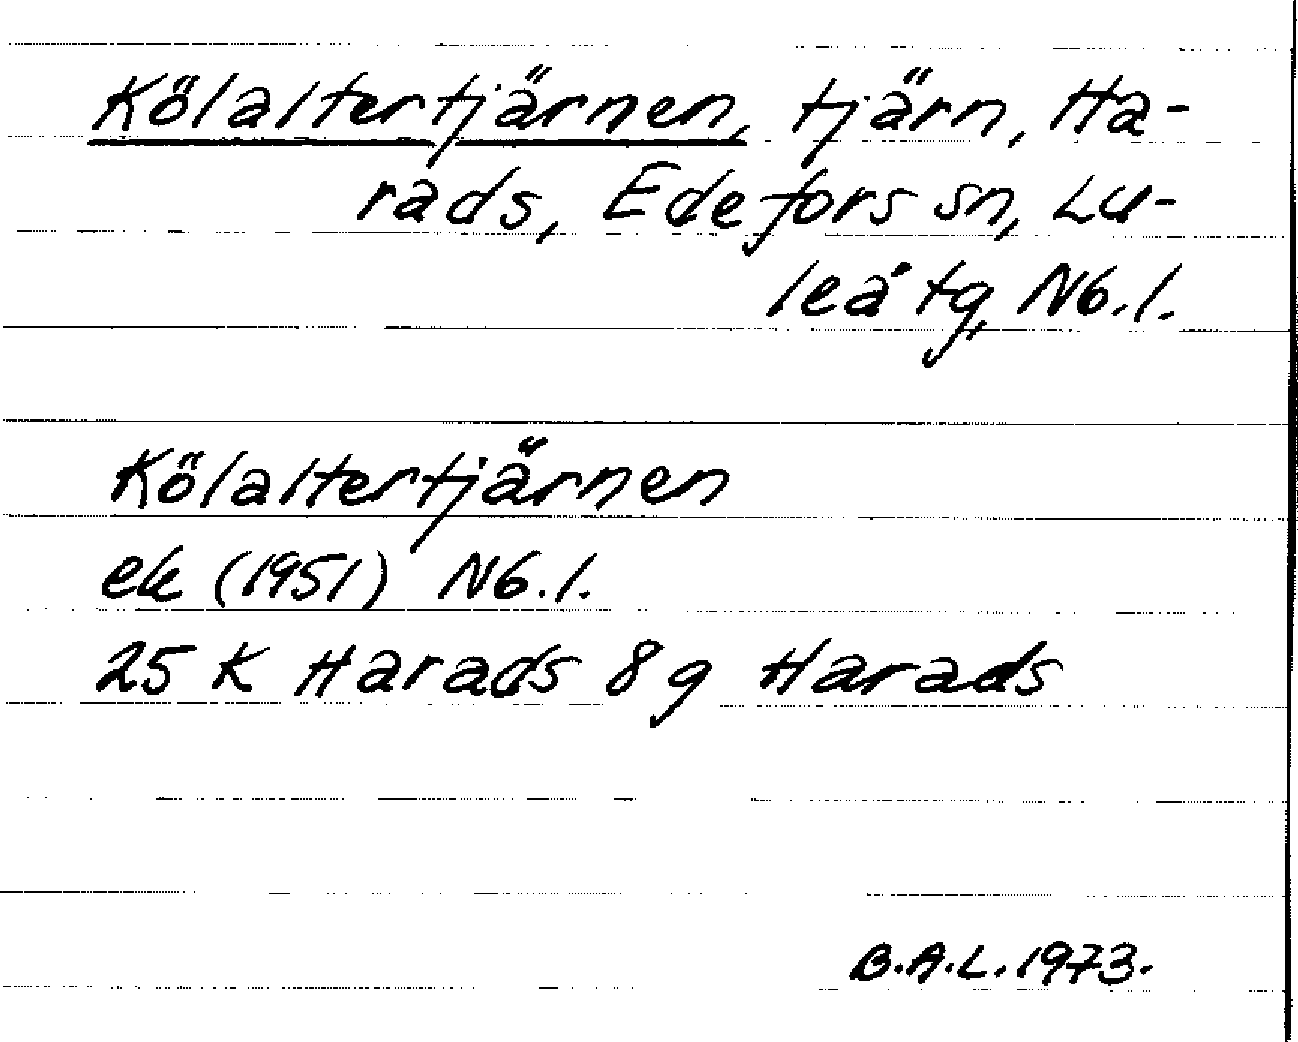 Kölaltertjärnen, tjärn, Ha-
rads, Edefors sn, Lu-
leå tg, Nb.l.
Kölaltertjärnen
ek (1951) Nb.l.
25 K Harads 8 g Harads
B.A.L. 1973.